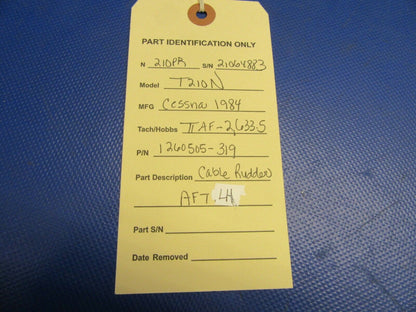 PART IDENTIFICATION ONLY
N 210PR S/N 21064883
Model T210N
MFG Cessna 1984
Tach/Hobbs TTAF-2,633.5
P/N 1260505-319
Part Description Cable Rudder
AFT LH
Part S/N
Date Removed